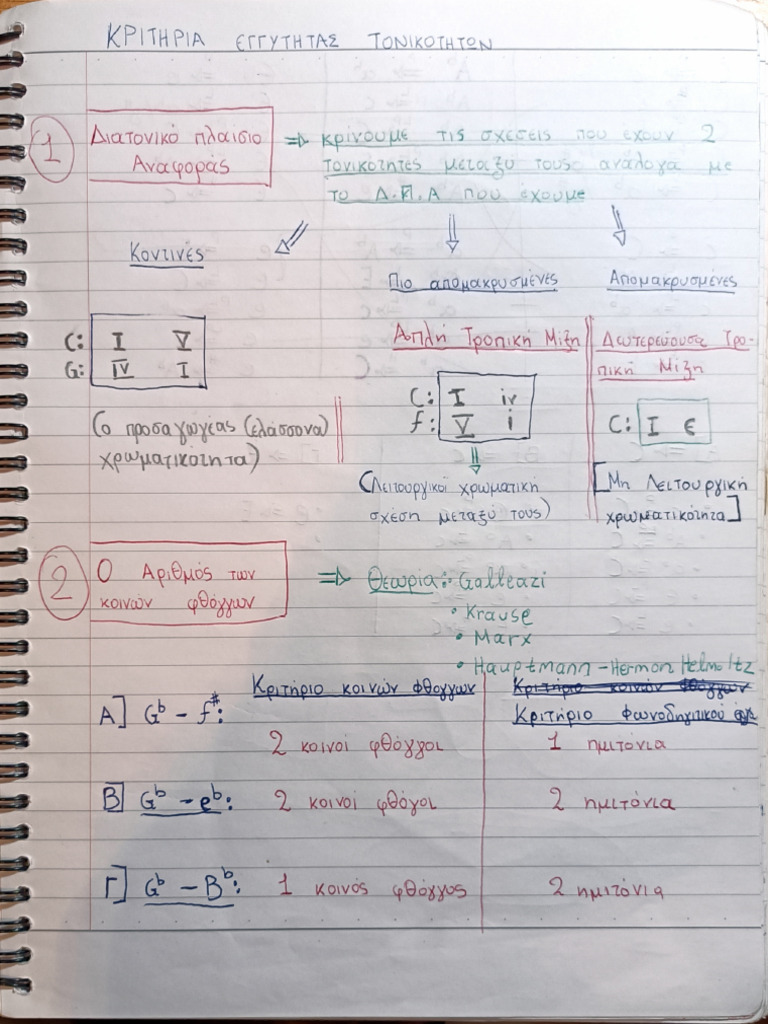 ΚΡΙΤΗΡΙΑ ΕΓΓΥΤΗΤΑΣ ΤΟΝΙΚΟΤΗΤΩΝ
1 Διατονικό πλαίσιο Αναφοράς
⇒ κρίνουμε τις σχέσεις που έχουν 2
τονικότητες μεταξύ τους ανάλογα με
το Δ.Π.Α που έχουμε
Κοντινές
C: I V
G: IV I
(ο προσαγωγέας (ελάσσονα)
χρωματικότητα)
Πιο απομακρυσμένες
Απλή Τροπική Μίξη
C: I iv
f: V i
(Λειτουργικοί χρωματική
σχέση μεταξύ τους)
Απομακρυσμένες
Δευτερεύουσα Τρο-
πική Μίξη
C: I E
[Μη Λειτουργική
χρωματικότητα]
2 Ο Αριθμός των
κοινών φθόγγων
⇒ Θεωρία: • Galleazi
• Krause
• Marx
• Hauptmann - Hermon Helmoltz
Κριτήριο κοινών φθόγγων
Κριτήριο κοινών φθόγγων
Κριτήριο φωνοδηγιτικού
Α] Gb - f#:
2 κοινοί φθόγγοι
1 ημιτόνια
Β] Gb - eb:
2 κοινοί φθόγοι
2 ημιτόνια
Γ] Gb - Bb:
1 κοινός φθόγγος
2 ημιτόνια